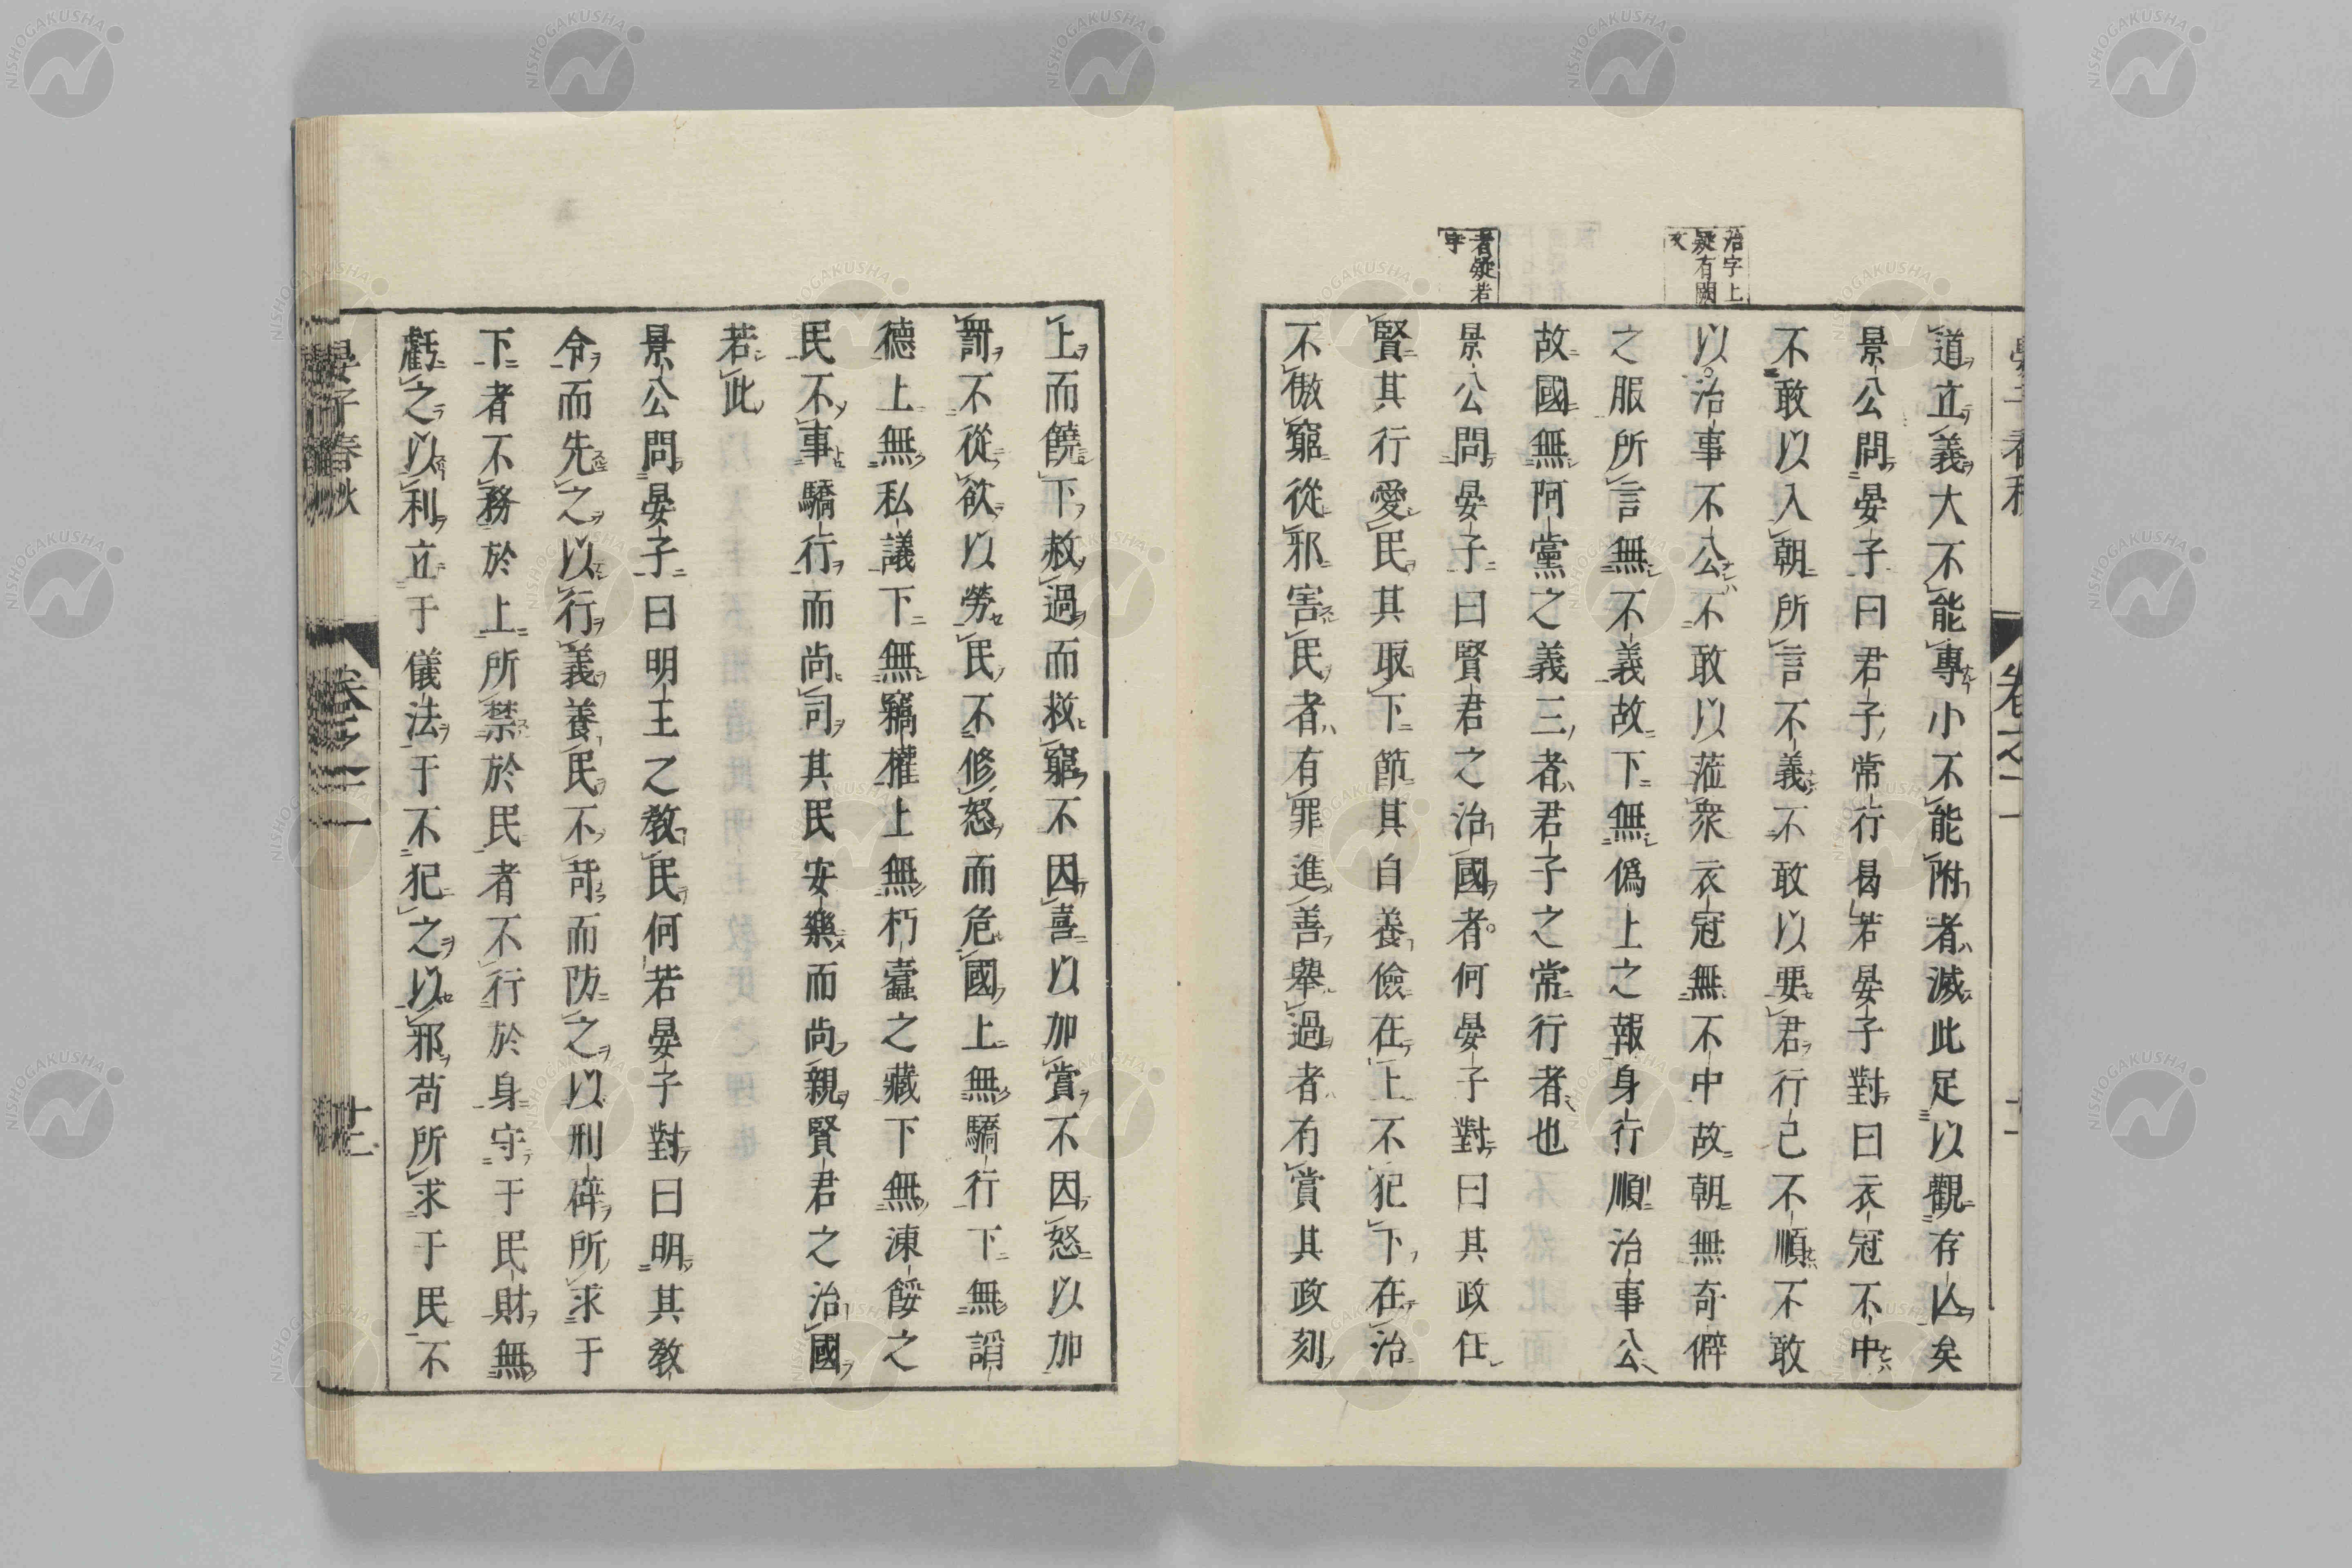 治字上
疑有闕
文
者疑若
字
道立義大不能專小不能附者滅此足以觀存亾矣
景公問晏子曰君子常行曷若晏子對曰衣冠不中
不敢以入朝所言不義不敢以要君行己不順不敢
以治事不公不敢以蒞衆衣冠無不中故朝無奇僻
之服所言無不義故下無僞上之報身行順治事公
故國無阿黨之義三者君子之常行者也
景公問晏子曰賢君之治國者何晏子對曰其政任
賢其行愛民其取下節其自養儉在上不犯下在治
不傲窮從邪害民者有罪進善舉過者有賞其政刻
上而饒下赦過而救窮不因喜以加賞不因怒以加
罰不從欲以勞民不修怒而危國上無驕行下無諂
德上無私議下無竊權上無朽蠹之藏下無凍餒之
民不事驕行而尚司其民安樂而尚親賢君之治國
若此
景公問晏子曰明王之教民何若晏子對曰明其教
令而先之以行義養民不苛而防之以刑辟所求于
下者不務於上所禁於民者不行於身守于民財無
虧之以利立于儀法于不犯之以邪苟所求于民不
晏子春秋
卷之三
十二
NISHOGAKUSHA